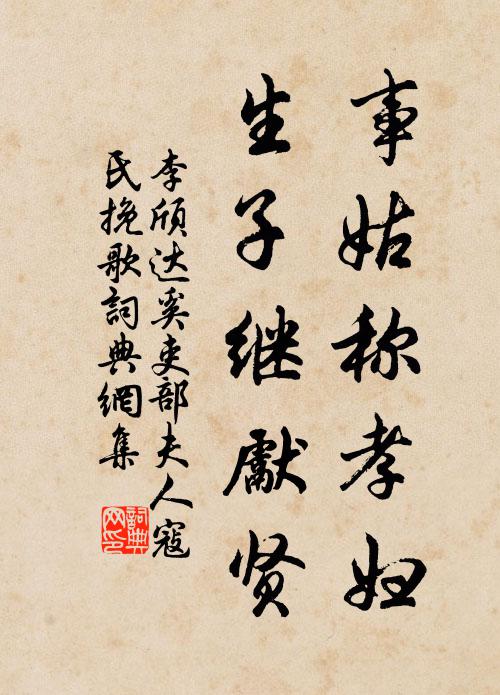 事姑称孝妇
生子继献贤
李颀达奚吏部夫人寇
氏挽歌詞典網集
詞典网印